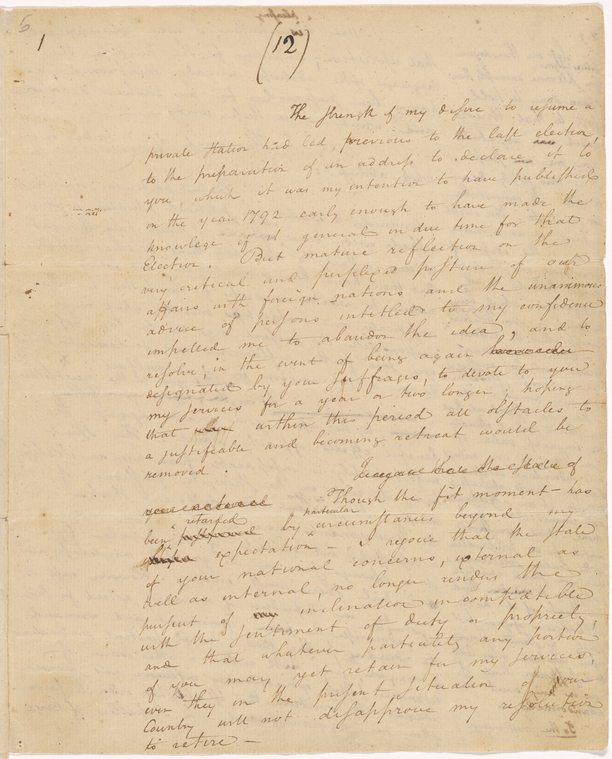 5
1
(12)
The strength of my desire to resume a
private station had led, previous to the last election,
to the preparation of an address to declare it to
you, which it was my intention to have published
in the year 1792 early enough to have made the
knowlege of it general in due time for that
Election. But mature reflection on the
very critical and perplexed posture of our
affairs with foreign nations and the unanimous
advice of persons intitled to my confidence
impelled me to abandon the idea, and to
resolve, in the event of being again
designated by your suffrages, to devote to you
my services for a year or two longer; hoping
that within this period all obstacles to
a justifiable and becoming retreat would be
removed.
the state of
Though the fit moment has
been retarded by particular circumstances beyond my
expectation – I rejoice that the state
of your national concerns, external as
well as internal, no longer renders the
pursuit of inclination incompatible
with the sentiment of duty or propriety,
and that whatever partiality any portion
of you may yet retain for my services,
even they in the present situation of our
Country will not disapprove my resolution
to retire –